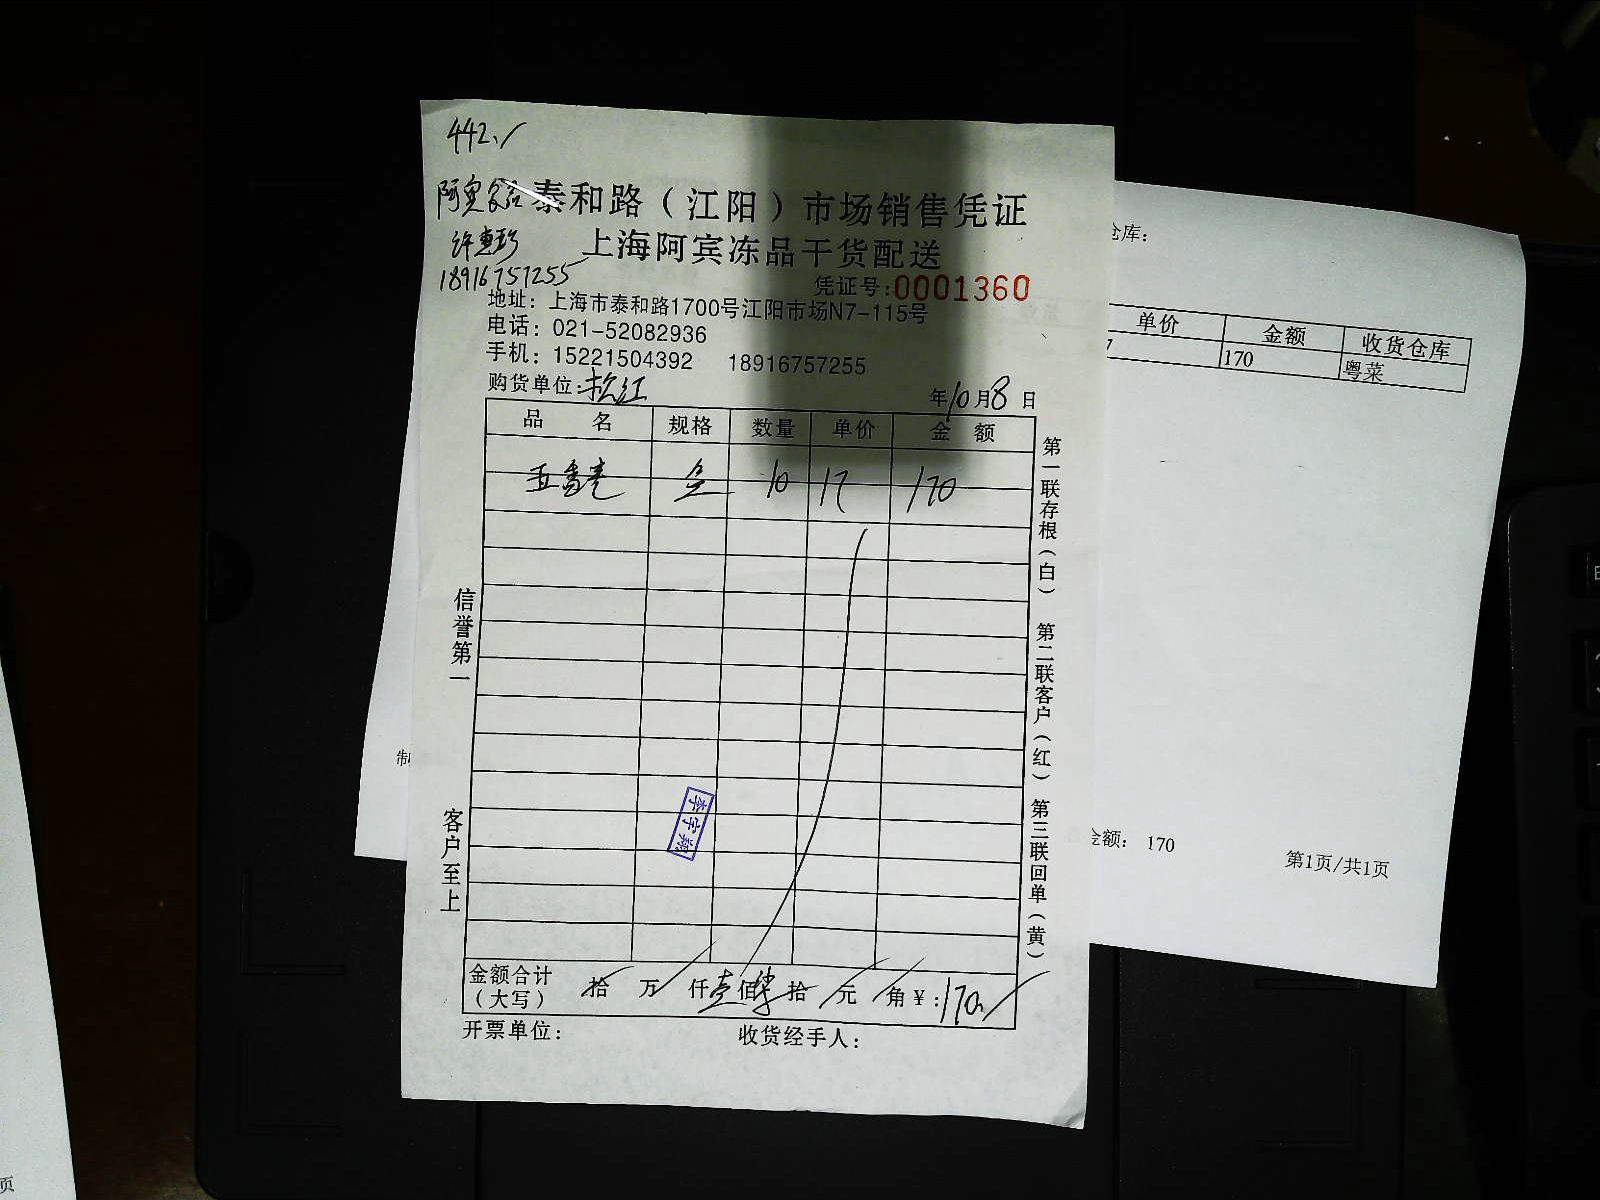 442.
泰和路（江阳）市场销售凭证
许惠珍
上海阿宾冻品干货配送
18916757255
凭证号:0001360
地址：上海市泰和路1700号江阳市场N7-115号
电话：021-52082936
手机：15221504392 18916757255
购货单位:松江
年10月8日
品 名 规格 数量 单价 金 额
五香 10 17 170
金额合计（大写） 拾 万 仟壹佰柒拾 元 角￥:170
开票单位： 收货经手人：
信誉第一 客户至上
第一联存根（白） 第二联客户（红） 第三联回单（黄）
李宇翔
仓库：
单价 金额 收货仓库
7 170 粤菜
制
金额： 170
第1页/共1页
页